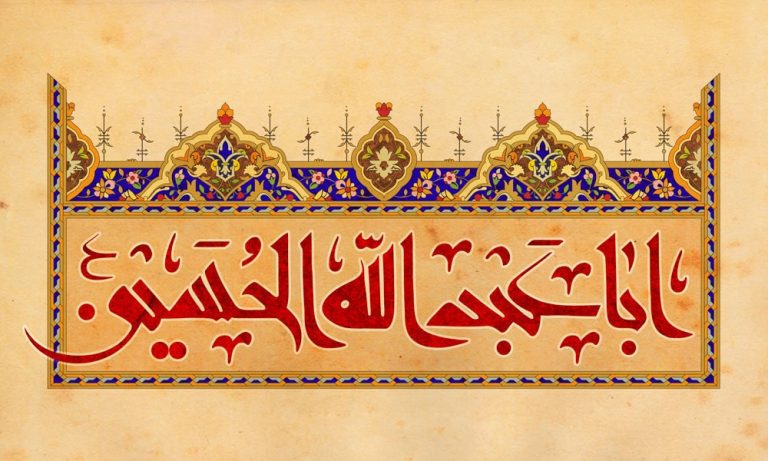 ابا عبد الله الحسین ع